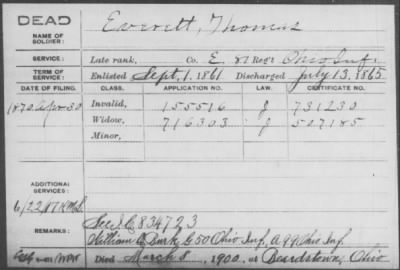 DEAD
NAME OF SOLDIER: Everett, Thomas
SERVICE: Late rank, Co. E. 87 Reg't Ohio Inf.
TERM OF SERVICE: Enlisted Sept. 1. 1861 Discharged July 13, 1865
DATE OF FILING. CLASS. APPLICATION NO. LAW. CERTIFICATE NO.
1870 Apr 30 Invalid, 155516 J 731230
Widow, 716303 J 507185
Minor,
ADDITIONAL SERVICES:
REMARKS: See I.C 834723
William A Burk, G 50 Ohio Inf, A 99 Ohio Inf.
Died March 8, 1900, at Beardstown, Ohio